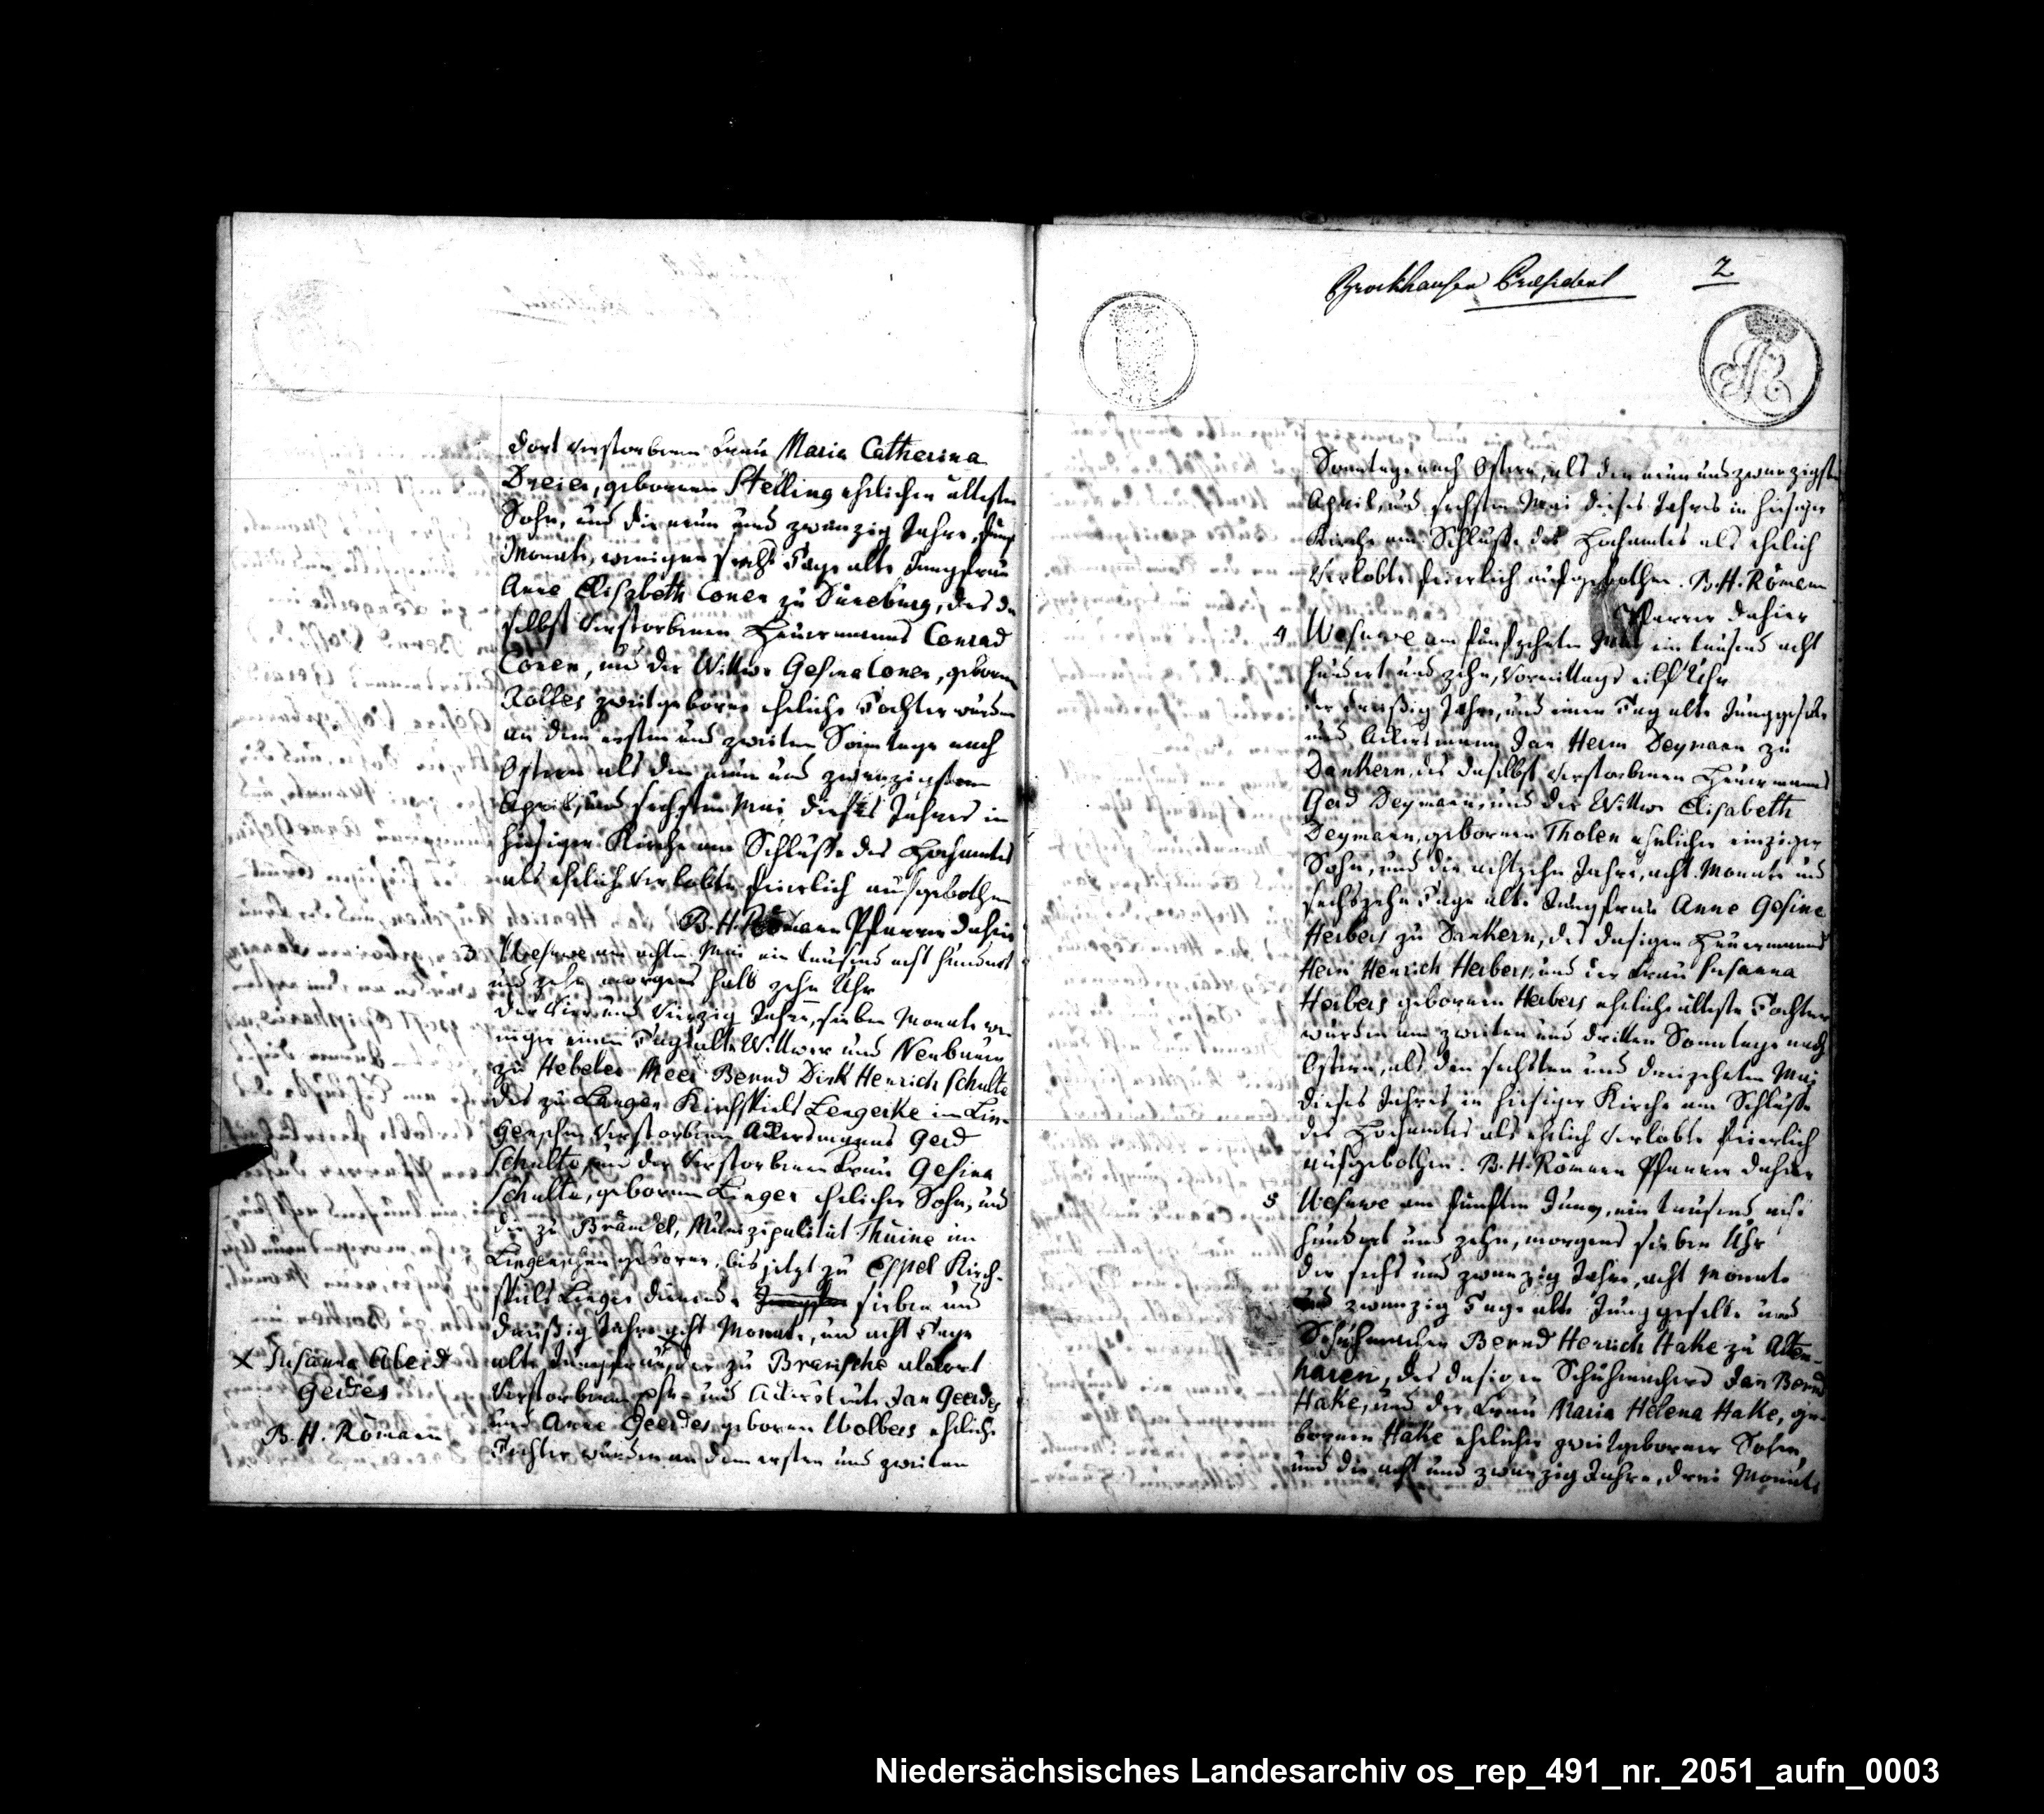 dort verstorbenen Frau Maria Catherina
Dreier, gebornen Stelling ehelicher ältester
Sohn, und die neun und zwanzig Jahre, fünf
Monate, weniger sechs Tage alte Jungfrau
Anne Elisabeth Conen zu Düneburg, des da
selbst verstorbenen Heuermanns Conrad
Conen, und der Wittwe Gesina Conen, gebornen
Rolfes zweitgeborne eheliche Tochter wurden
an dem ersten und zweiten Sonntage nach
Ostern als den neun und zwanzigsten
April, und sechsten Mai dieses Jahres in
hiesiger Kirche am Schlusse des Hochamtes
als ehelich Verlobte feierlich aufgebothen
B. H. Römann Pfarrer dahier
3 Wesuwe am achten Mai ein tausend acht hundert
und zehn morgens halb zehn Uhr
der vier und vierzig Jahre, sieben Monate we-
niger einen Tag alte Wittwer und Neubauer
zu Hebeler Meer Bernd Dirk Henrich Schulte
des zu Langen Kirchspiels Lengerke im Lin-
genschen verstorbenen Ackersmanns Gerd
Schulte, und der verstorbenen Frau Gesina
Schulte, gebornen Linger ehelicher Sohn, und
die zu Bramsel, Munizipalität Thuine im
Lingenschen geborne, bis jetzt zu Espel Kirch-
spiels Linger dienende sieben und
dreißig Jahre acht Monate, und acht Tage
alte Jungfrau, der zu Bramsche aldort
verstorbenen Ehe- und Ackersleute Jan Geerdes
und Anne Geerdes gebornen Wolbers eheliche
Tochter wurden an dem ersten und zweiten
X Susanna Aleid
Gerdes
B. H. Römann
Brockhausen Præsident
2
Sonntage nach Ostern, als den neun und zwanzigsten
April, und sechsten Mai dieses Jahres in hiesiger
Kirche am Schlusse des Hochamtes als ehelich
Verlobte feierlich aufgebothen. B. H. Römann
Pfarrer dahier
4 Wesuwe am fünfzehnten Mai ein tausend acht
hundert und zehn, Vormittags eilf Uhr
der dreißig Jahre, und einen Tag alte Junggeselle
und Ackersmann Jan Herm Deymann zu
Dankern, des daselbst verstorbenen Heuermanns
Gerd Deymann, und der Wittwe Elisabeth
Deymann, gebornen Tholen ehelicher einziger
Sohn, und die achtzehn Jahre, acht Monate und
sechszehn Tage alte Jungfrau Anne Gesina
Herbers zu Dankern, des dasigen Heuermanns
Herm Henrich Herbers, und der Frau Susanna
Herbers gebornen Herbers eheliche älteste Tochter
wurden am zweiten und dritten Sonntage nach
Ostern, als den sechsten und dreizehnten Mai
dieses Jahres in hiesiger Kirche am Schlusse
des Hochamtes als ehelich Verlobte feierlich
aufgebothen. B. H. Römann Pfarrer dahier
5 Wesuwe am fünften Juny, ein tausend acht
hundert und zehn, morgens sieben Uhr
der sechs und zwanzig Jahre, acht Monate
und zwanzig Tage alte Junggeselle und
Schuhmacher Bernd Henrich Hake zu Alten-
haren, des dasigen Schuhmachers Jan Bernd
Hake, und der Frau Maria Helena Hake, ge-
bornen Hake ehelicher zweitgeborner Sohn,
und die acht und zwanzig Jahre, drei Monate
Niedersächsisches Landesarchiv os_rep_491_nr._2051_aufn_0003